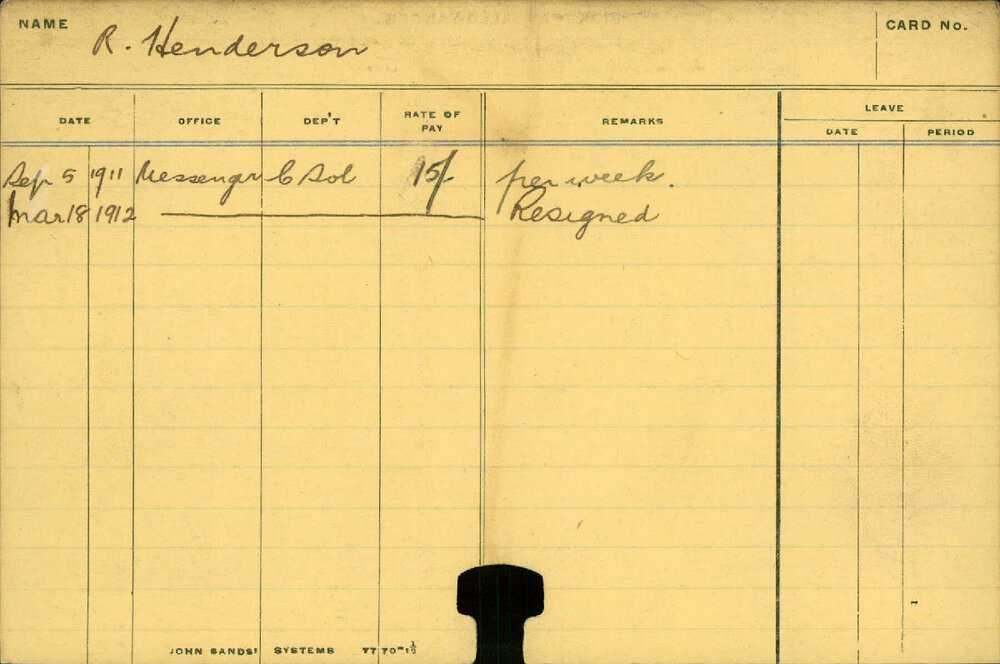 NAME R. Henderson CARD No.
DATE OFFICE DEP'T RATE OF PAY REMARKS LEAVE
DATE PERIOD
Sep 5 1911 Messenger C Sol 15/- per week.
Mar 18 1912 Resigned
JOHN SANDS' SYSTEMS 7770-1½